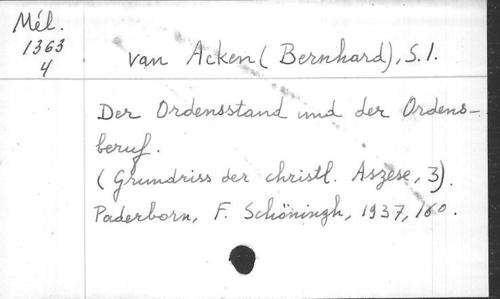 Mél.
1363
4
van Acken (Bernhard), S.I.
Der Ordensstand und der Ordens-
beruf.
(Grundriss der christl. Aszese, 3).
Paderborn, F. Schöningh, 1937, 160.